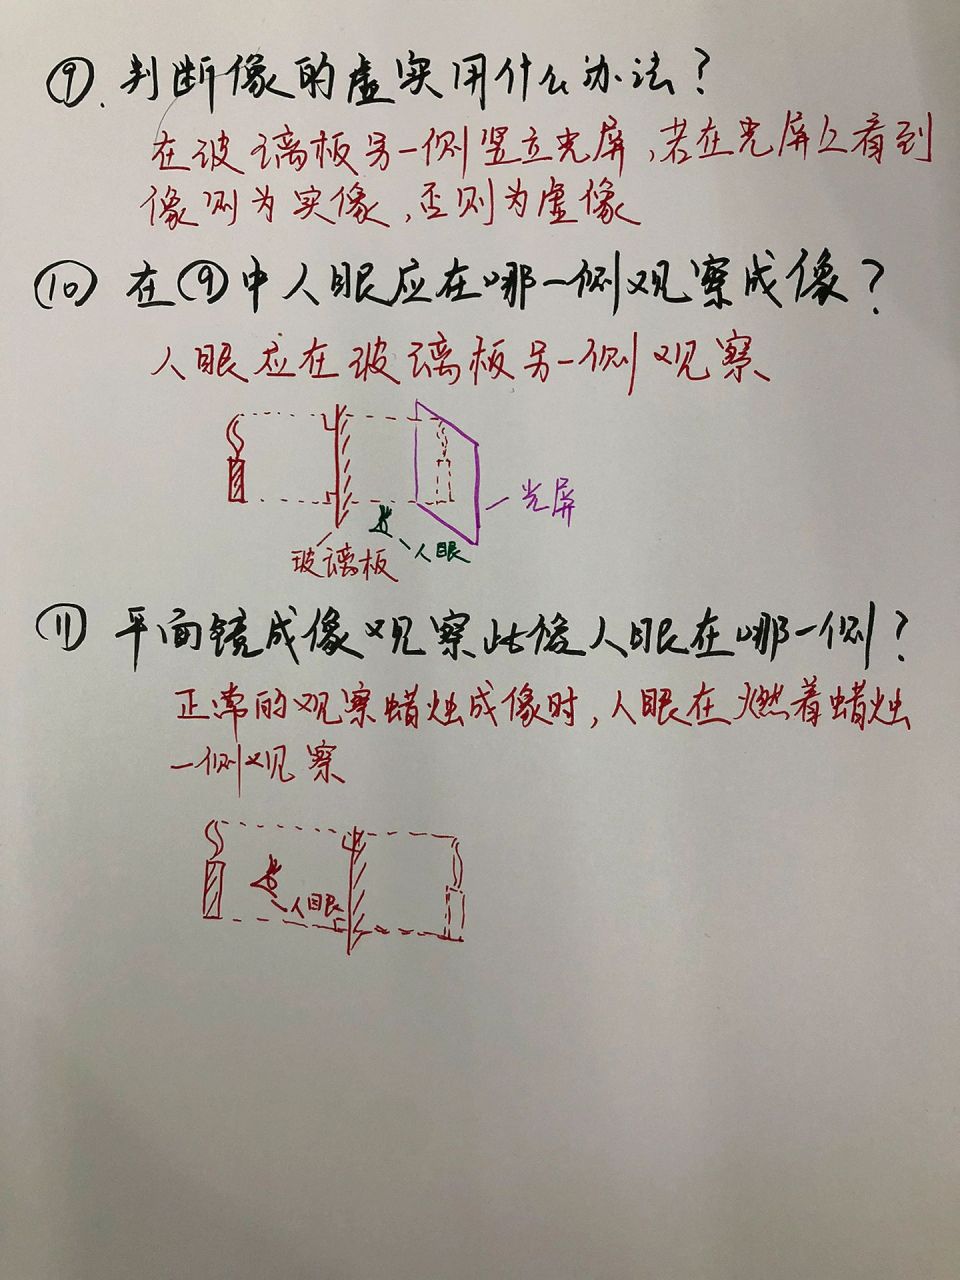 ⑨. 判断像的虚实用什么办法?
在玻璃板另一侧竖立光屏,若在光屏上看到
像则为实像,否则为虚像
⑩ 在⑨中人眼应在哪一侧观察成像?
人眼应在玻璃板另一侧观察
光屏
人眼
玻璃板
⑪ 平面镜成像观察此像人眼在哪一侧?
正常的观察蜡烛成像时,人眼在燃着蜡烛
一侧观察
人眼